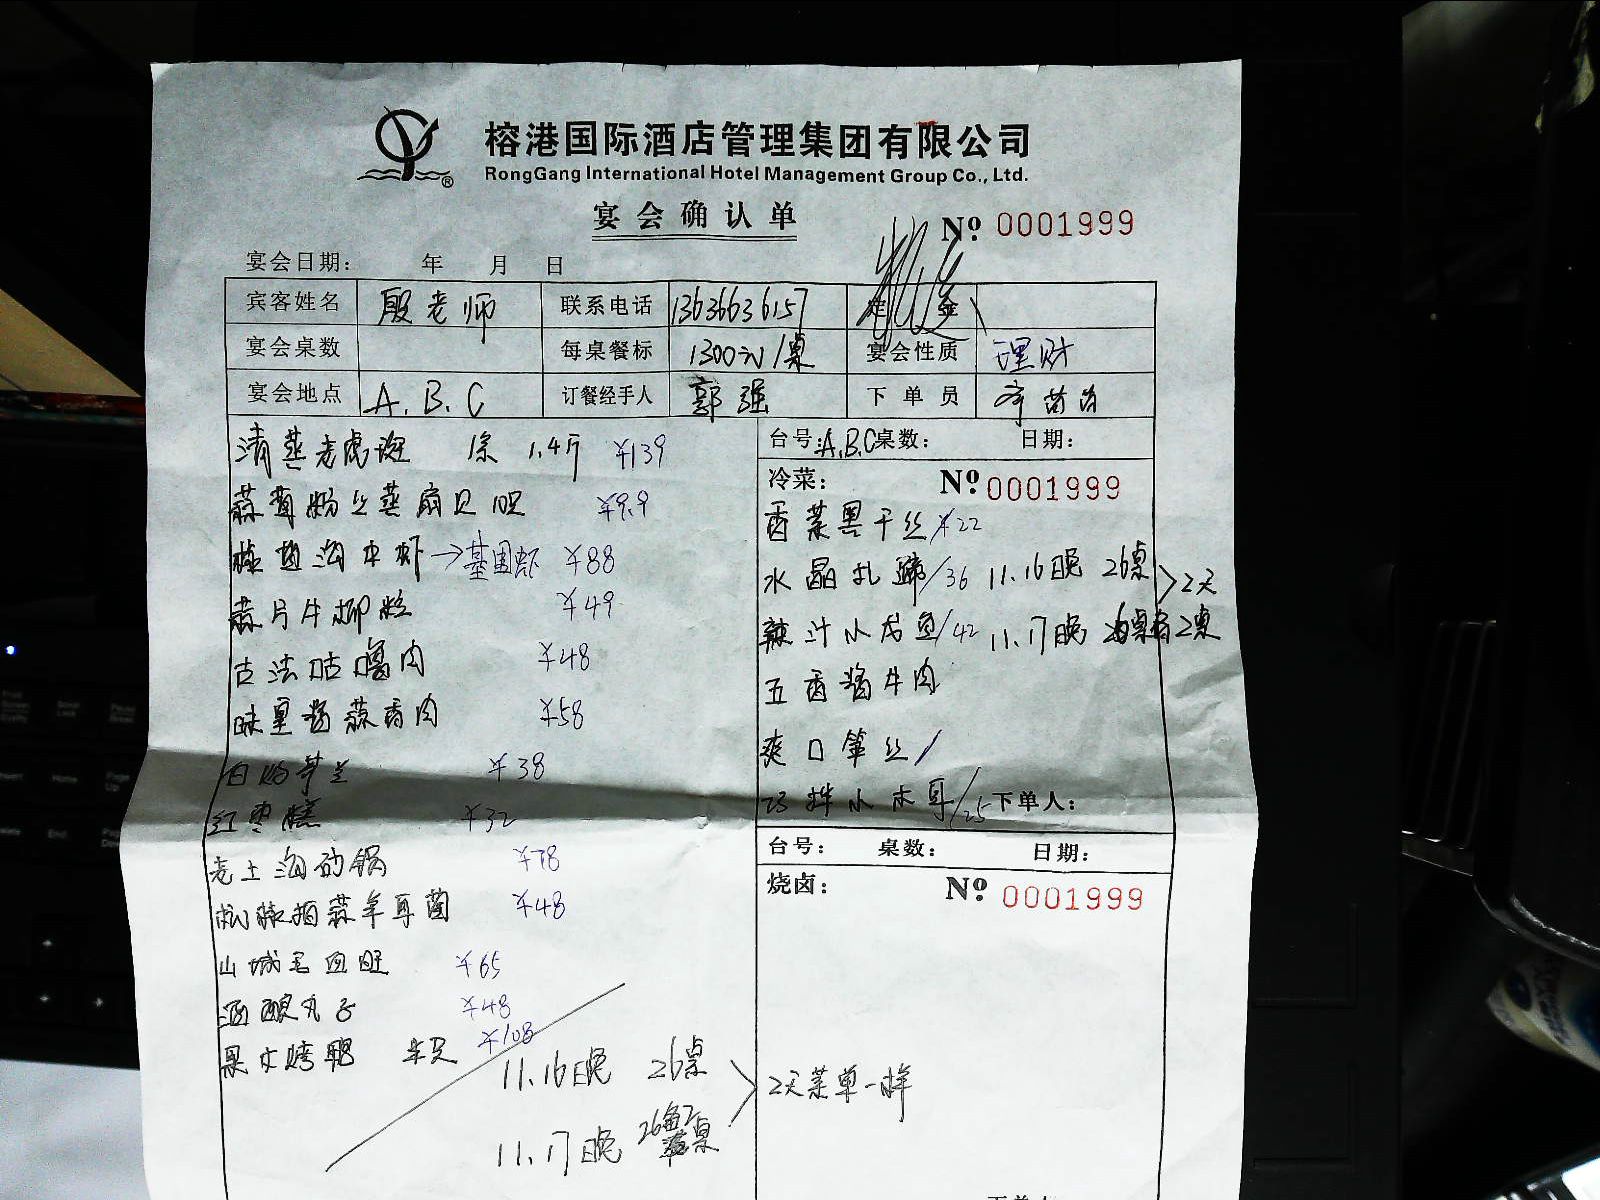 榕港国际酒店管理集团有限公司
RongGang International Hotel Management Group Co., Ltd.
宴会确认单
№ 0001999
宴会日期： 年 月 日
宾客姓名 殷老师 联系电话 13636636157 定金
宴会桌数 每桌餐标 1300元/桌 宴会性质 理财
宴会地点 A.B.C 订餐经手人 郭强 下单员
清蒸老虎斑 1条 1.4斤 ¥139
蒜茸粉丝蒸扇贝 ¥9.9
椒盐沟中虾→基围虾 ¥88
蒜片牛柳粒 ¥49
古法咕噜肉 ¥48
味里酱蒜香肉 ¥58
白灼芥兰 ¥38
红枣糕 ¥32
老土沟砂锅 ¥78
蒜羊耳菌 ¥48
山城毛血旺 ¥65
酒酿丸子 ¥48
果木烤鸭 ¥108
11.16晚 26桌
11.17晚
2天菜单一样
台号：A.B.C 桌数： 日期：
冷菜： № 0001999
香菜黑干丝 ¥22
水晶扎蹄/36 11.16晚 26桌
2天
辣汁小龙鱼/42 11.17晚
五香酱牛肉
爽口笋丝/
拌小木耳/25 下单人：
台号： 桌数： 日期：
烧卤： № 0001999
下单人